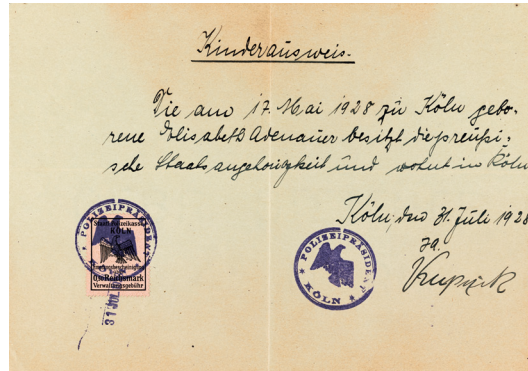 Kinderausweis.
Die am 17. Mai 1928 zu Köln gebo-
rene Elisabeth Adenauer besitzt die preußi-
sche Staatsangehörigkeit und wohnt in Köln
Köln, den 31. Juli 1928
POLIZEIPRÄSIDENT
KÖLN
Staatl. Polizeikasse
KÖLN
Reichsmark
Verwaltungsgebühr
31 JUL
POLIZEIPRÄSIDENT
KÖLN